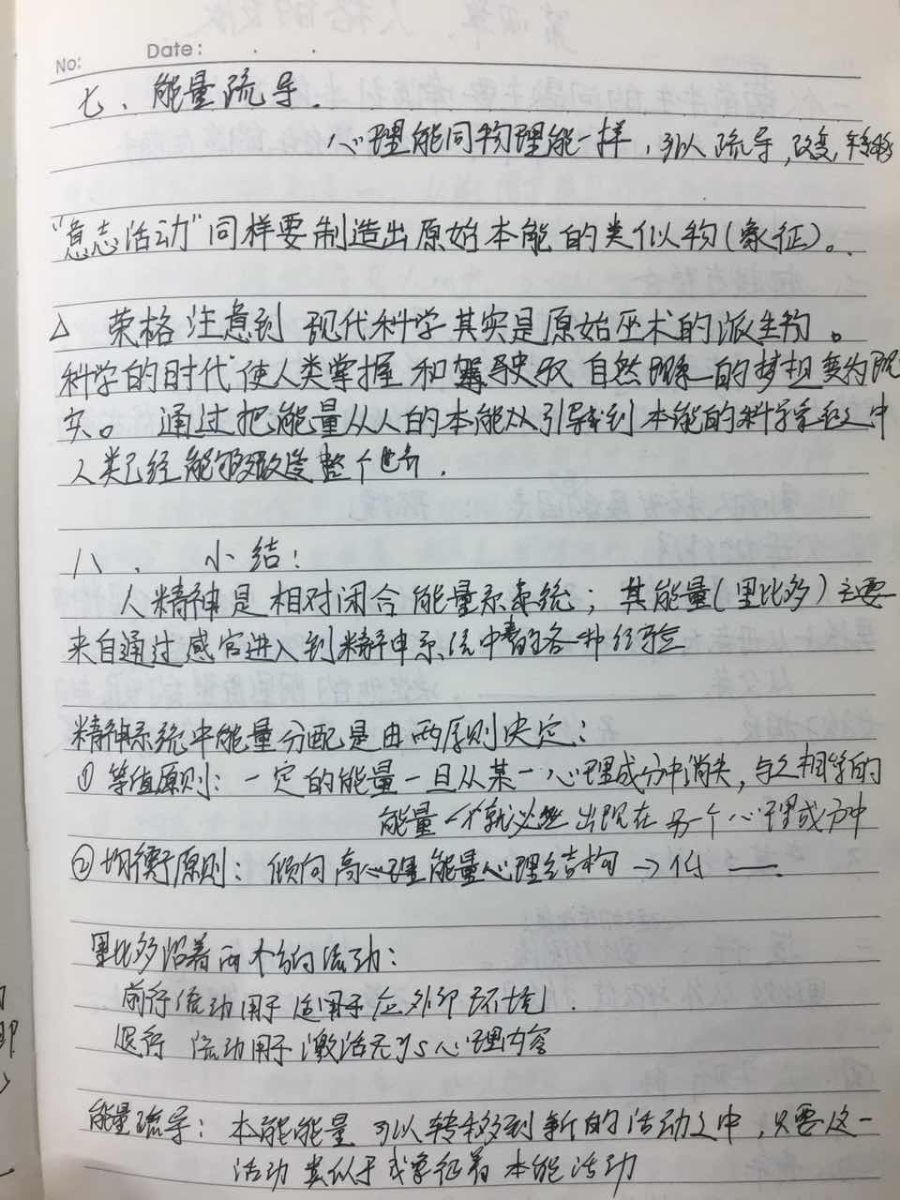 No: Date: . .
七、能量疏导.
心理能同物理能一样,可以疏导,改变,转移
“意志活动”同样要制造出原始本能的类似物(象征)。
△ 荣格注意到 现代科学其实是原始巫术的派生物。
科学的时代使人类掌握和驾驶驭自然现象的梦想变为现
实。 通过把能量从人的本能从引导到本能的科学象征之中
人类已经能够改造整个世界.
八、 小结:
人精神是相对闭合能量系统; 其能量(里比多)主要
来自通过感官进入到精神系统中的各种经验
精神系统中能量分配是由两原则决定:
① 等值原则: 一定的能量一旦从某一心理成分中消失,与之相等的
能量 就必然出现在另一个心理成分中
② 均衡原则: 倾向高心理能量心理结构 → 低 ——.
里比多沿着两个方向流动:
前行流动用于适应外部环境.
退行 流动用于激活无意识心理内容
能量疏导: 本能能量可以转移到新的活动之中,只要这一
活动类似于或象征着本能活动